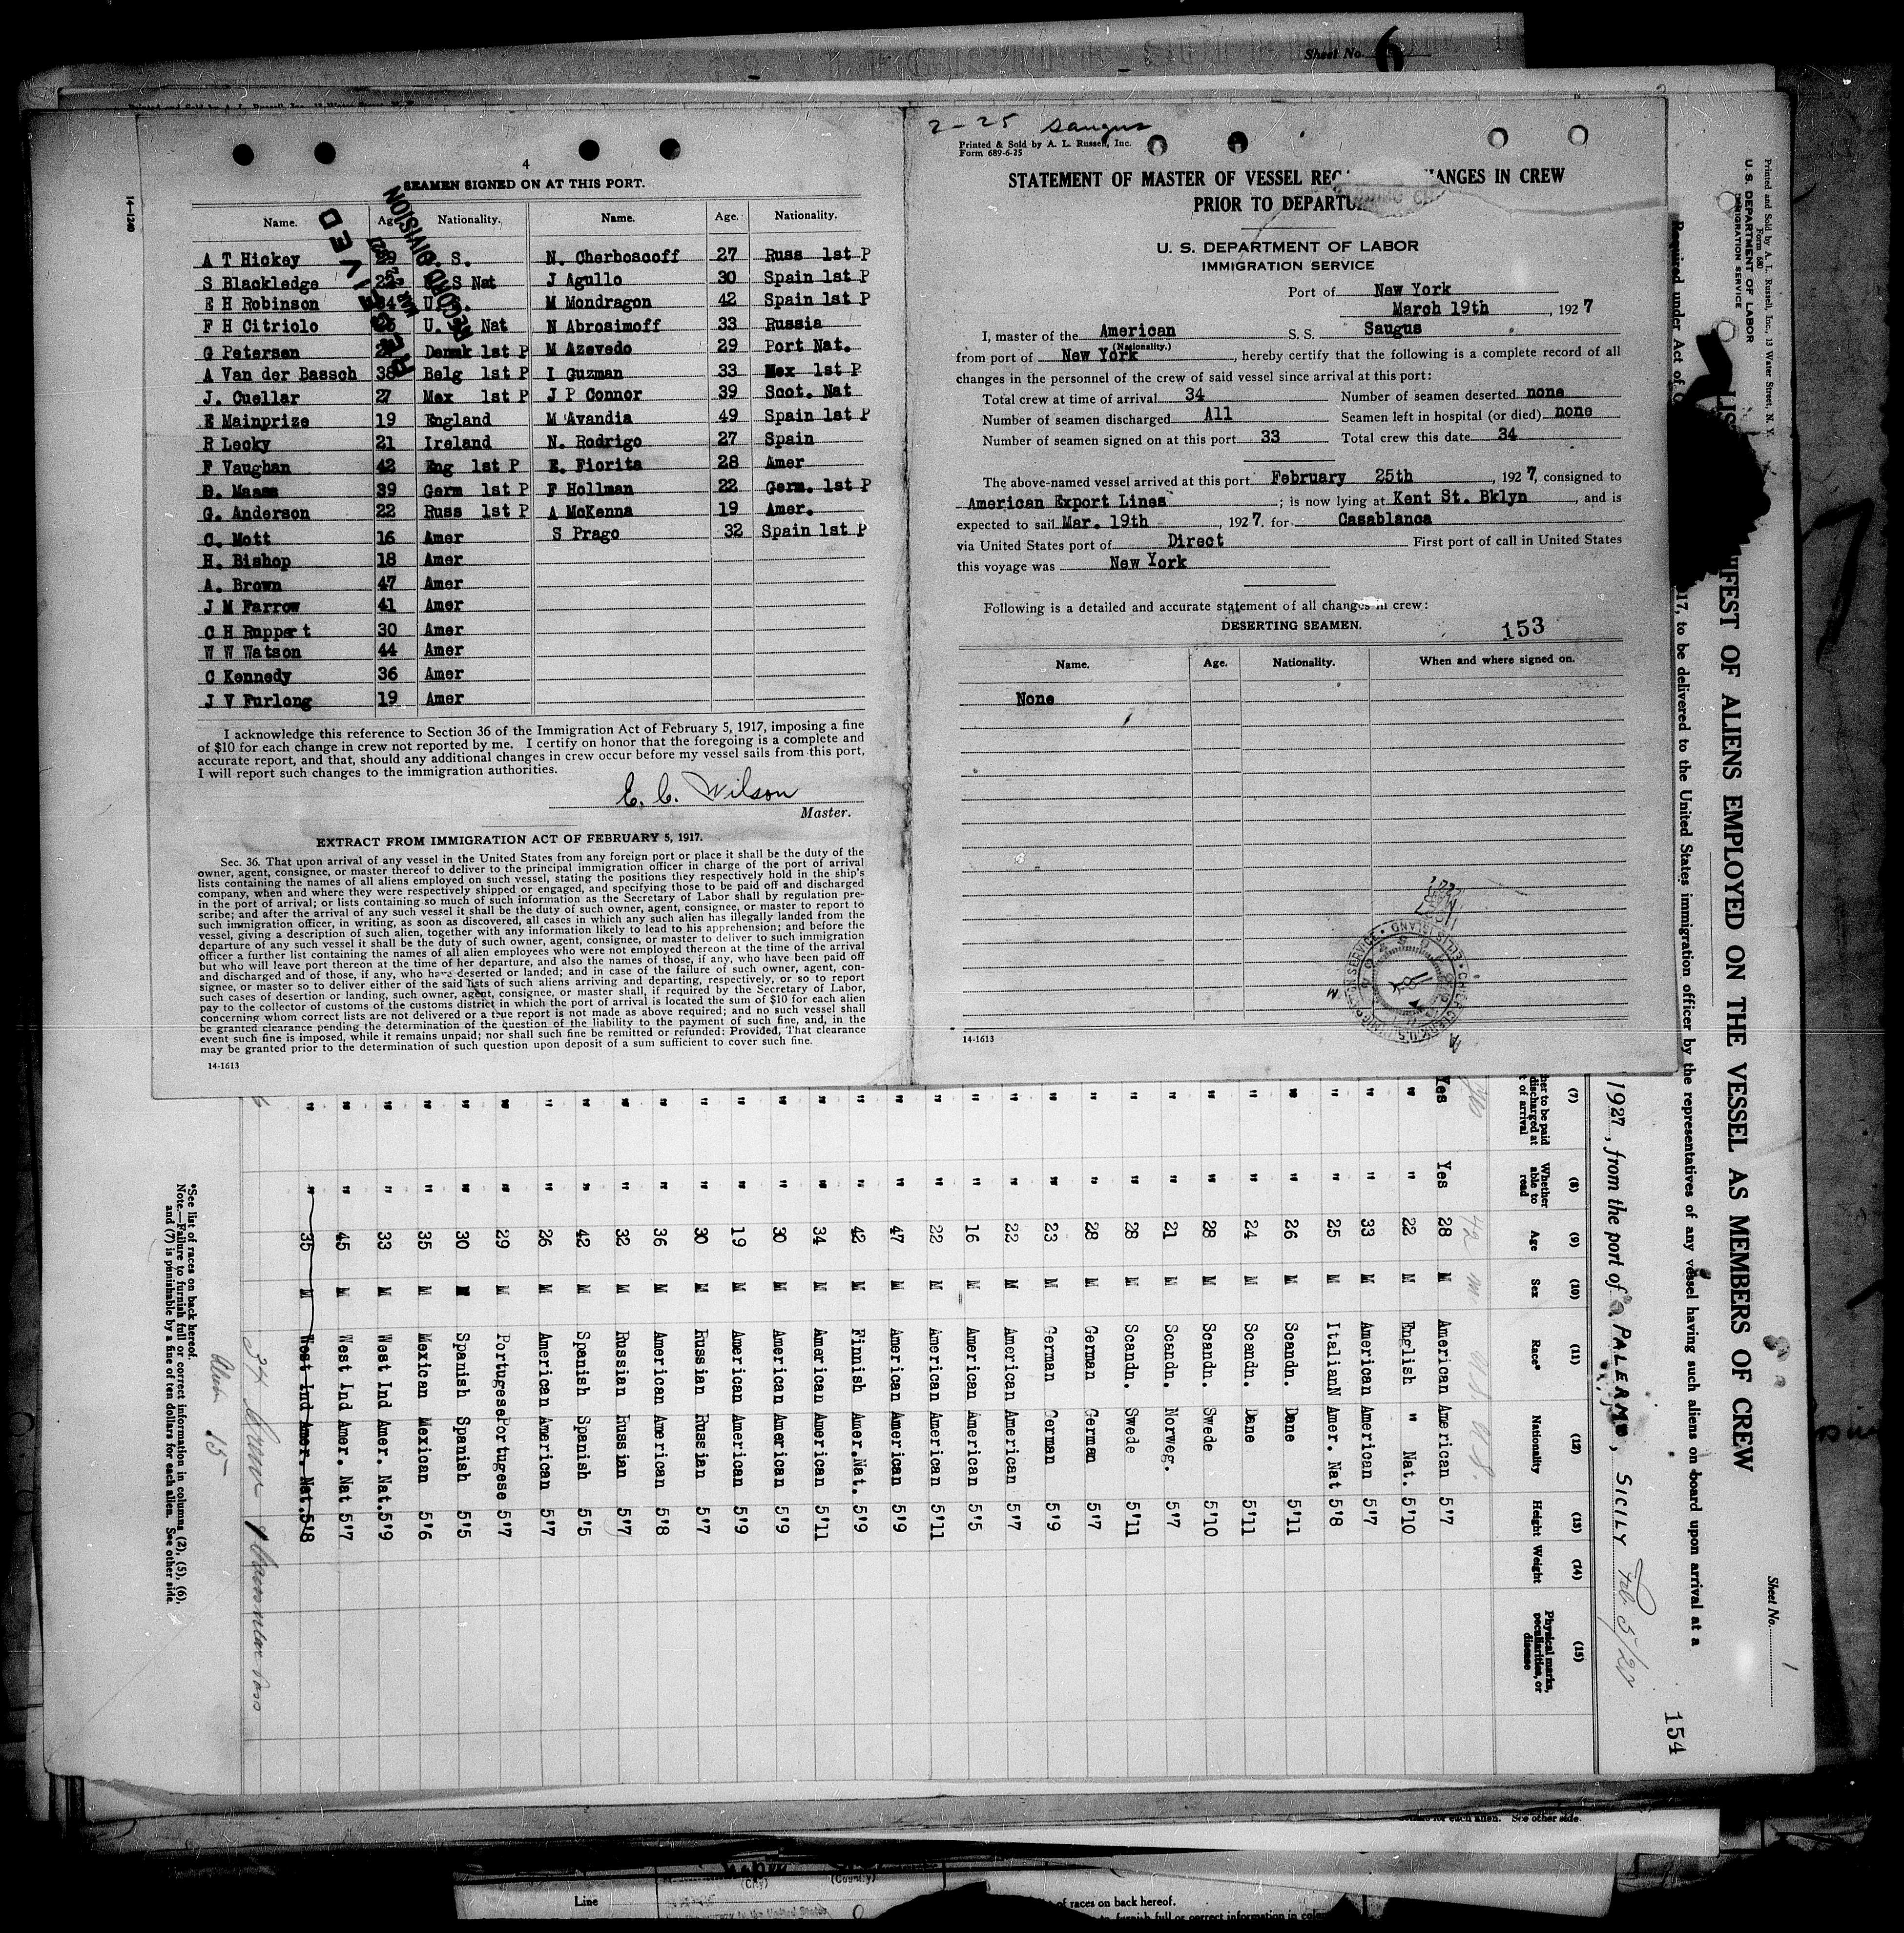 Sheet No. 6
14-1240
4
SEAMEN SIGNED ON AT THIS PORT.
Name. Age. Nationality. Name. Age. Nationality.
A T Hickey 29 . S. N. Cherboscoff 27 Russ 1st P
S Blackledge 22 S Nat J Agullo 30 Spain 1st P
E H Robinson 34 U.S. M Mondragon 42 Spain 1st P
F H Citriolo U. Nat N Abrosimoff 33 Russia
G Petersen Denmk 1st P M Azevedo 29 Port Nat.
A Van der Bassch 38 Belg 1st P I Guzman 33 Mex 1st P
J. Cuellar 27 Mex 1st P J P Connor 39 Scot. Nat
E Mainprize 19 England M Avandia 49 Spain 1st P
R Lecky 21 Ireland N. Rodrigo 27 Spain
F Vaughan 42 Eng 1st P E. Fiorita 28 Amer
D. Maass 39 Germ 1st P F Hollman 22 Germ. 1st P
G. Anderson 22 Russ 1st P A McKenna 19 Amer.
C. Mott 16 Amer S Prago 32 Spain 1st P
H. Bishop 18 Amer
A. Brown 47 Amer
J M Farrow 41 Amer
C H Ruppert 30 Amer
W W Watson 44 Amer
C Kennedy 36 Amer
J V Furlong 19 Amer
RECEIVED
RECORD DIVISION
I acknowledge this reference to Section 36 of the Immigration Act of February 5, 1917, imposing a fine
of $10 for each change in crew not reported by me. I certify on honor that the foregoing is a complete and
accurate report, and that, should any additional changes in crew occur before my vessel sails from this port,
I will report such changes to the immigration authorities.
E. C. Wilson
Master.
EXTRACT FROM IMMIGRATION ACT OF FEBRUARY 5, 1917.
Sec. 36. That upon arrival of any vessel in the United States from any foreign port or place it shall be the duty of the
owner, agent, consignee, or master thereof to deliver to the principal immigration officer in charge of the port of arrival
lists containing the names of all aliens employed on such vessel, stating the positions they respectively hold in the ship's
company, when and where they were respectively shipped or engaged, and specifying those to be paid off and discharged
in the port of arrival; or lists containing so much of such information as the Secretary of Labor shall by regulation pre-
scribe; and after the arrival of any such vessel it shall be the duty of such owner, agent, consignee, or master to report to
such immigration officer, in writing, as soon as discovered, all cases in which any such alien has illegally landed from the
vessel, giving a description of such alien, together with any information likely to lead to his apprehension; and before the
departure of any such vessel it shall be the duty of such owner, agent, consignee, or master to deliver to such immigration
officer a further list containing the names of all alien employees who were not employed thereon at the time of the arrival
but who will leave port thereon at the time of her departure, and also the names of those, if any, who have been paid off
and discharged and of those, if any, who have deserted or landed; and in case of the failure of such owner, agent, con-
signee, or master so to deliver either of the said lists of such aliens arriving and departing, respectively, or so to report
such cases of desertion or landing, such owner, agent, consignee, or master shall, if required by the Secretary of Labor,
pay to the collector of customs of the customs district in which the port of arrival is located the sum of $10 for each alien
concerning whom correct lists are not delivered or a true report is not made as above required; and no such vessel shall
be granted clearance pending the determination of the question of the liability to the payment of such fine, and, in the
event such fine is imposed, while it remains unpaid; nor shall such fine be remitted or refunded: Provided, That clearance
may be granted prior to the determination of such question upon deposit of a sum sufficient to cover such fine.
14-1613
2-25 Saugus
Printed & Sold by A. L. Russell, Inc.
Form 689-6-25
STATEMENT OF MASTER OF VESSEL REG HANGES IN CREW
PRIOR TO DEPARTU
U. S. DEPARTMENT OF LABOR
IMMIGRATION SERVICE
Port of New York
March 19th, 1927
I, master of the American S. S. Saugus
(Nationality.)
from port of New York, hereby certify that the following is a complete record of all
changes in the personnel of the crew of said vessel since arrival at this port:
Total crew at time of arrival 34 Number of seamen deserted none
Number of seamen discharged All Seamen left in hospital (or died) none
Number of seamen signed on at this port 33 Total crew this date 34
The above-named vessel arrived at this port February 25th, 1927, consigned to
American Export Lines; is now lying at Kent St. Bklyn, and is
expected to sail Mar. 19th, 1927. for Casablanca
via United States port of Direct First port of call in United States
this voyage was New York
Following is a detailed and accurate statement of all changes in crew:
DESERTING SEAMEN. 153
Name. Age. Nationality. When and where signed on.
None
14-1613
Printed and Sold by A. L. Russell, Inc., 13 Water Street, N. Y.
Form 680
U. S. DEPARTMENT OF LABOR
IMMIGRATION SERVICE
Sheet No. 1
LIS IFEST OF ALIENS EMPLOYED ON THE VESSEL AS MEMBERS OF CREW
Required under Act of 17, to be delivered to the United States immigration officer by the representatives of any vessel having such aliens on board upon arrival at a
154
1927, from the port of PALERMO, SICILY Feb 5/27
(7) (8) (9) (10) (11) (12) (13) (14) (15)
her to be paid discharged at of arrival Whether able to read Age Sex Race* Nationality Height Weight Physical marks, peculiarities, or disease
42 m U.S. U.S.
Yes Yes 28 M American American 5'7
" " 22 M English " Nat. 5'10
" " 33 M American American 5'7
" " 25 M ItaliaN Amer. Nat 5'8
" " 26 M Scandn. Dane 5'11
" " 24 M Scandn. Dane 5'11
" " 28 M Scandn. Swede 5'10
" " 21 M Scandn. Norweg. 5'7
" " 28 M Scandn. Swede 5'11
" " 28 M German German 5'7
" " 23 M German German 5'9
" " 22 M American American 5'7
" " 16 M American American 5'5
" " 22 M American American 5'11
" " 47 M American American 5'9
" " 42 M Finnish Amer.Nat. 5'9
" " 34 M American American 5'11
" " 30 M American American 5'9
" " 19 M American American 5'9
" " 30 M Russian Russian 5'7
" " 36 M American American 5'8
" " 32 M Russian Russian 5'7
" " 42 M Spanish Spanish 5'5
" " 26 M American American 5'7
" " 29 M Portugese Portugese 5'7
" " 30 M Spanish Spanish 5'5
" " 35 M Mexican Mexican 5'6
" " 33 M West Ind Amer. Nat. 5'9
" " 45 M West Ind Amer. Nat 5'7
" " 35 M West Ind Amer. Nat. 5'8
34 Crew
15
*See list of races on back hereof.
Note.—Failure to furnish full or correct information in columns (2), (5), (6),
and (7) is punishable by a fine of ten dollars for each alien. See other side.
for each alien. See other side.
(City) (Country)
Line
of races on back hereof.
to furnish full or correct information in